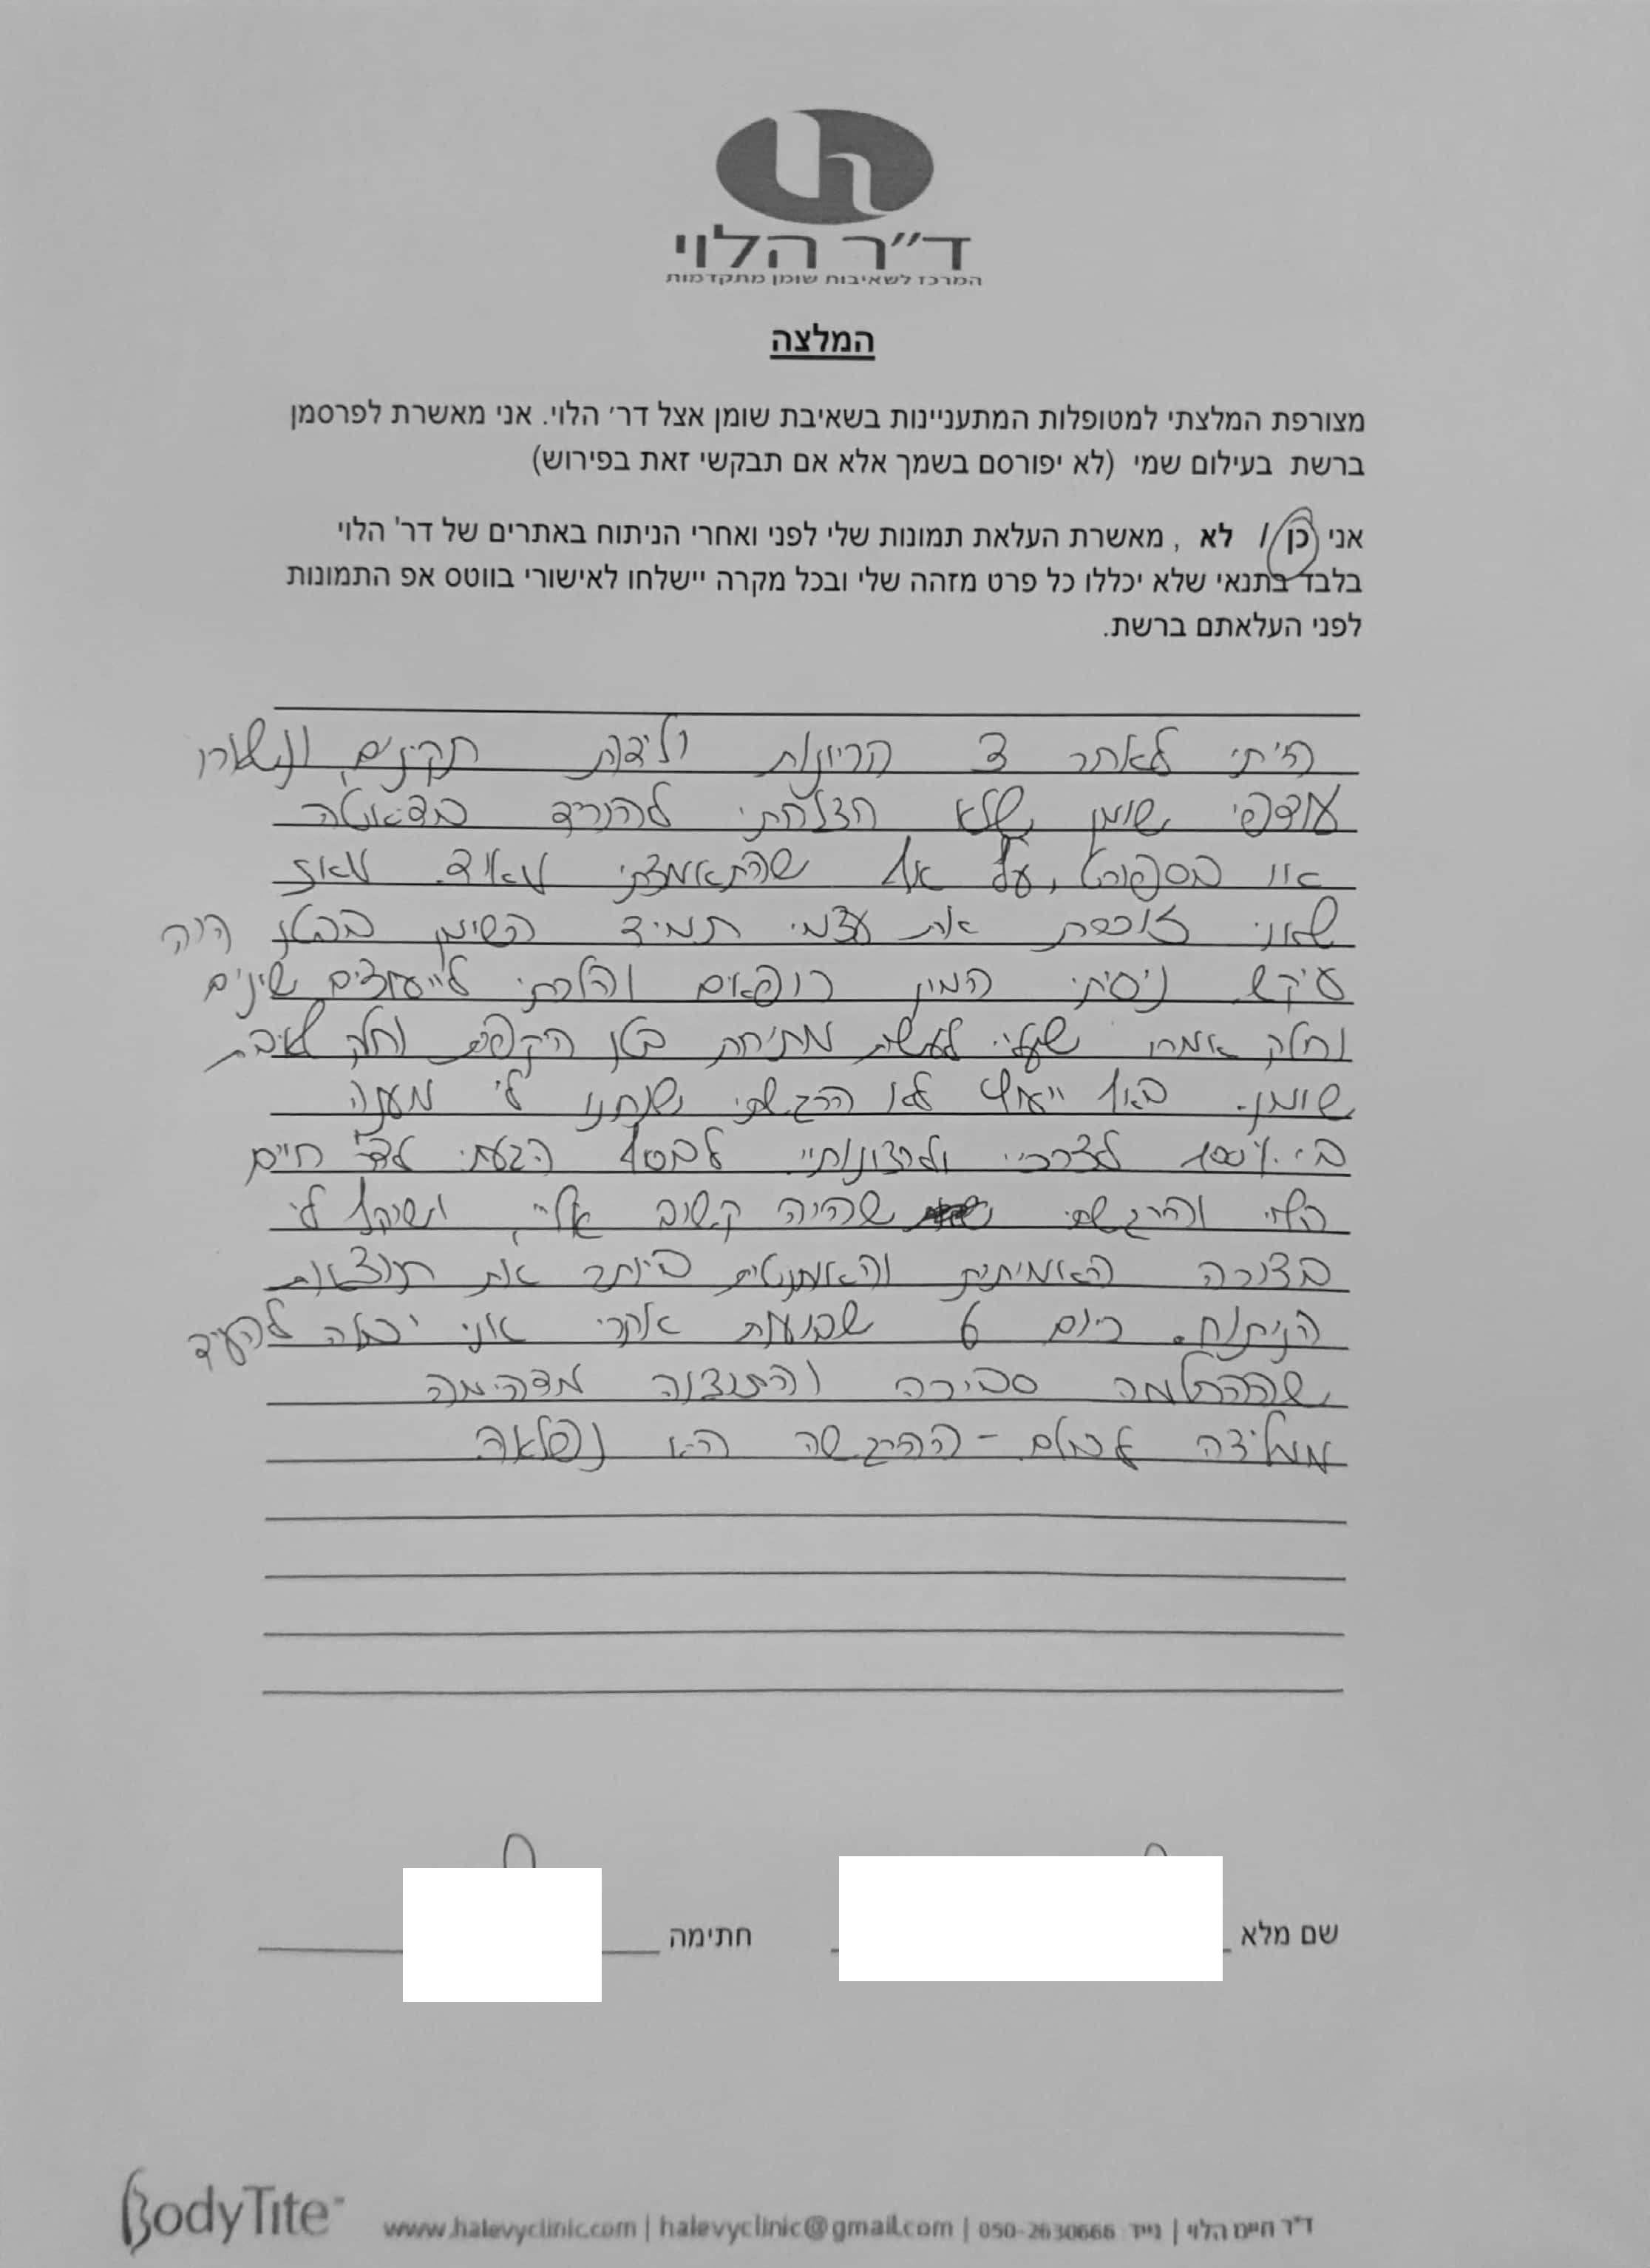 ד״ר הלוי
המרכז לשאיבות שומן מתקדמות
המלצה
מצורפת המלצתי למטופלות המתעניינות בשאיבת שומן אצל דר׳ הלוי. אני מאשרת לפרסמן
ברשת בעילום שמי (לא יפורסם בשמך אלא אם תבקשי זאת בפירוש)
אני כן / לא , מאשרת העלאת תמונות שלי לפני ואחרי הניתוח באתרים של דר' הלוי
בלבד בתנאי שלא יכללו כל פרט מזהה שלי ובכל מקרה יישלחו לאישורי בווטס אפ התמונות
לפני העלאתם ברשת.
הייתי לאחר 3 הריונות ולידות תקינים ונשארו
עודפי שומן שלא הצלחתי להוריד בדיאטה
או בספורט, על אף שהתאמצתי מאוד. מאז
שאני זוכרת את עצמי תמיד השומן בבטן היה
עיקש ניסיתי המון רופאים והלכתי לייעוצים שונים
וחלק אמרו שעליי לעשות מתיחת בטן היקפית וחלק שאיבת
שומן. באף ייעוץ לא הרגשתי שנתנו לי מענה
ב-100% לצרכיי ולרצונותיי לבסוף הגעתי לד״ר חיים
הלוי והרגשתי שהיה קשוב אליי, ושיקף לי
בצורה האמיתית והאותנטית ביותר את תוצאות
הניתוח. כיום 6 שבועות אחרי אני יכולה להעיד
שההחלמה סבירה והתוצאה מדהימה
ממליצה לכולם - ההרגשה היא נפלאה
שם מלא
חתימה
BodyTite™
www.halevyclinic.com | halevyclinic@gmail.com | 050-2630666 ד״ר חיים הלוי | נייד